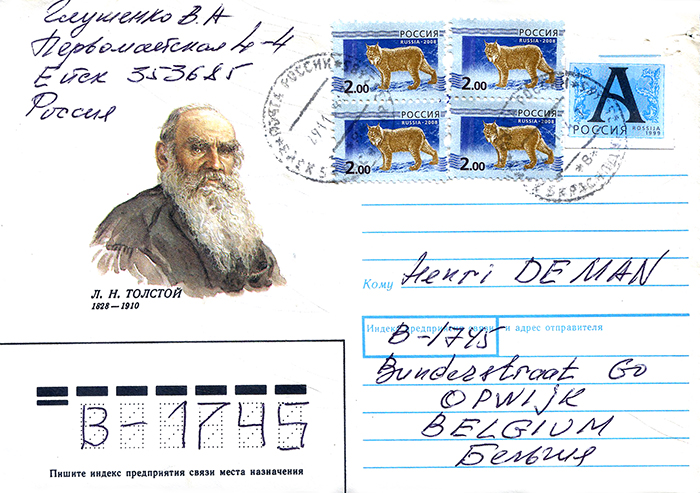 Глушенко В.А
Первомайская 4-4
Ейск 353685
Россия
РОССИЯ
RUSSIA-2008
2.00
РОССИЯ
RUSSIA-2008
2.00
РОССИЯ
RUSSIA-2008
2.00
РОССИЯ
RUSSIA-2008
2.00
А
РОССИЯ
ROSSIJA
1999
ПОЧТА РОССИИ
Л. Н. ТОЛСТОЙ
1828—1910
Кому Henri DE MAN
Индекс предприятия связи и адрес отправителя
B-1745
Bunderstraat 60
OPWIJK
BELGIUM
Бельгия
B-1745
Пишите индекс предприятия связи места назначения